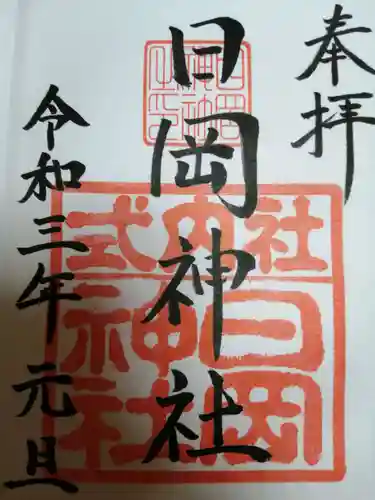 奉拝
日岡神社
令和三年元旦
式内社
日岡神社